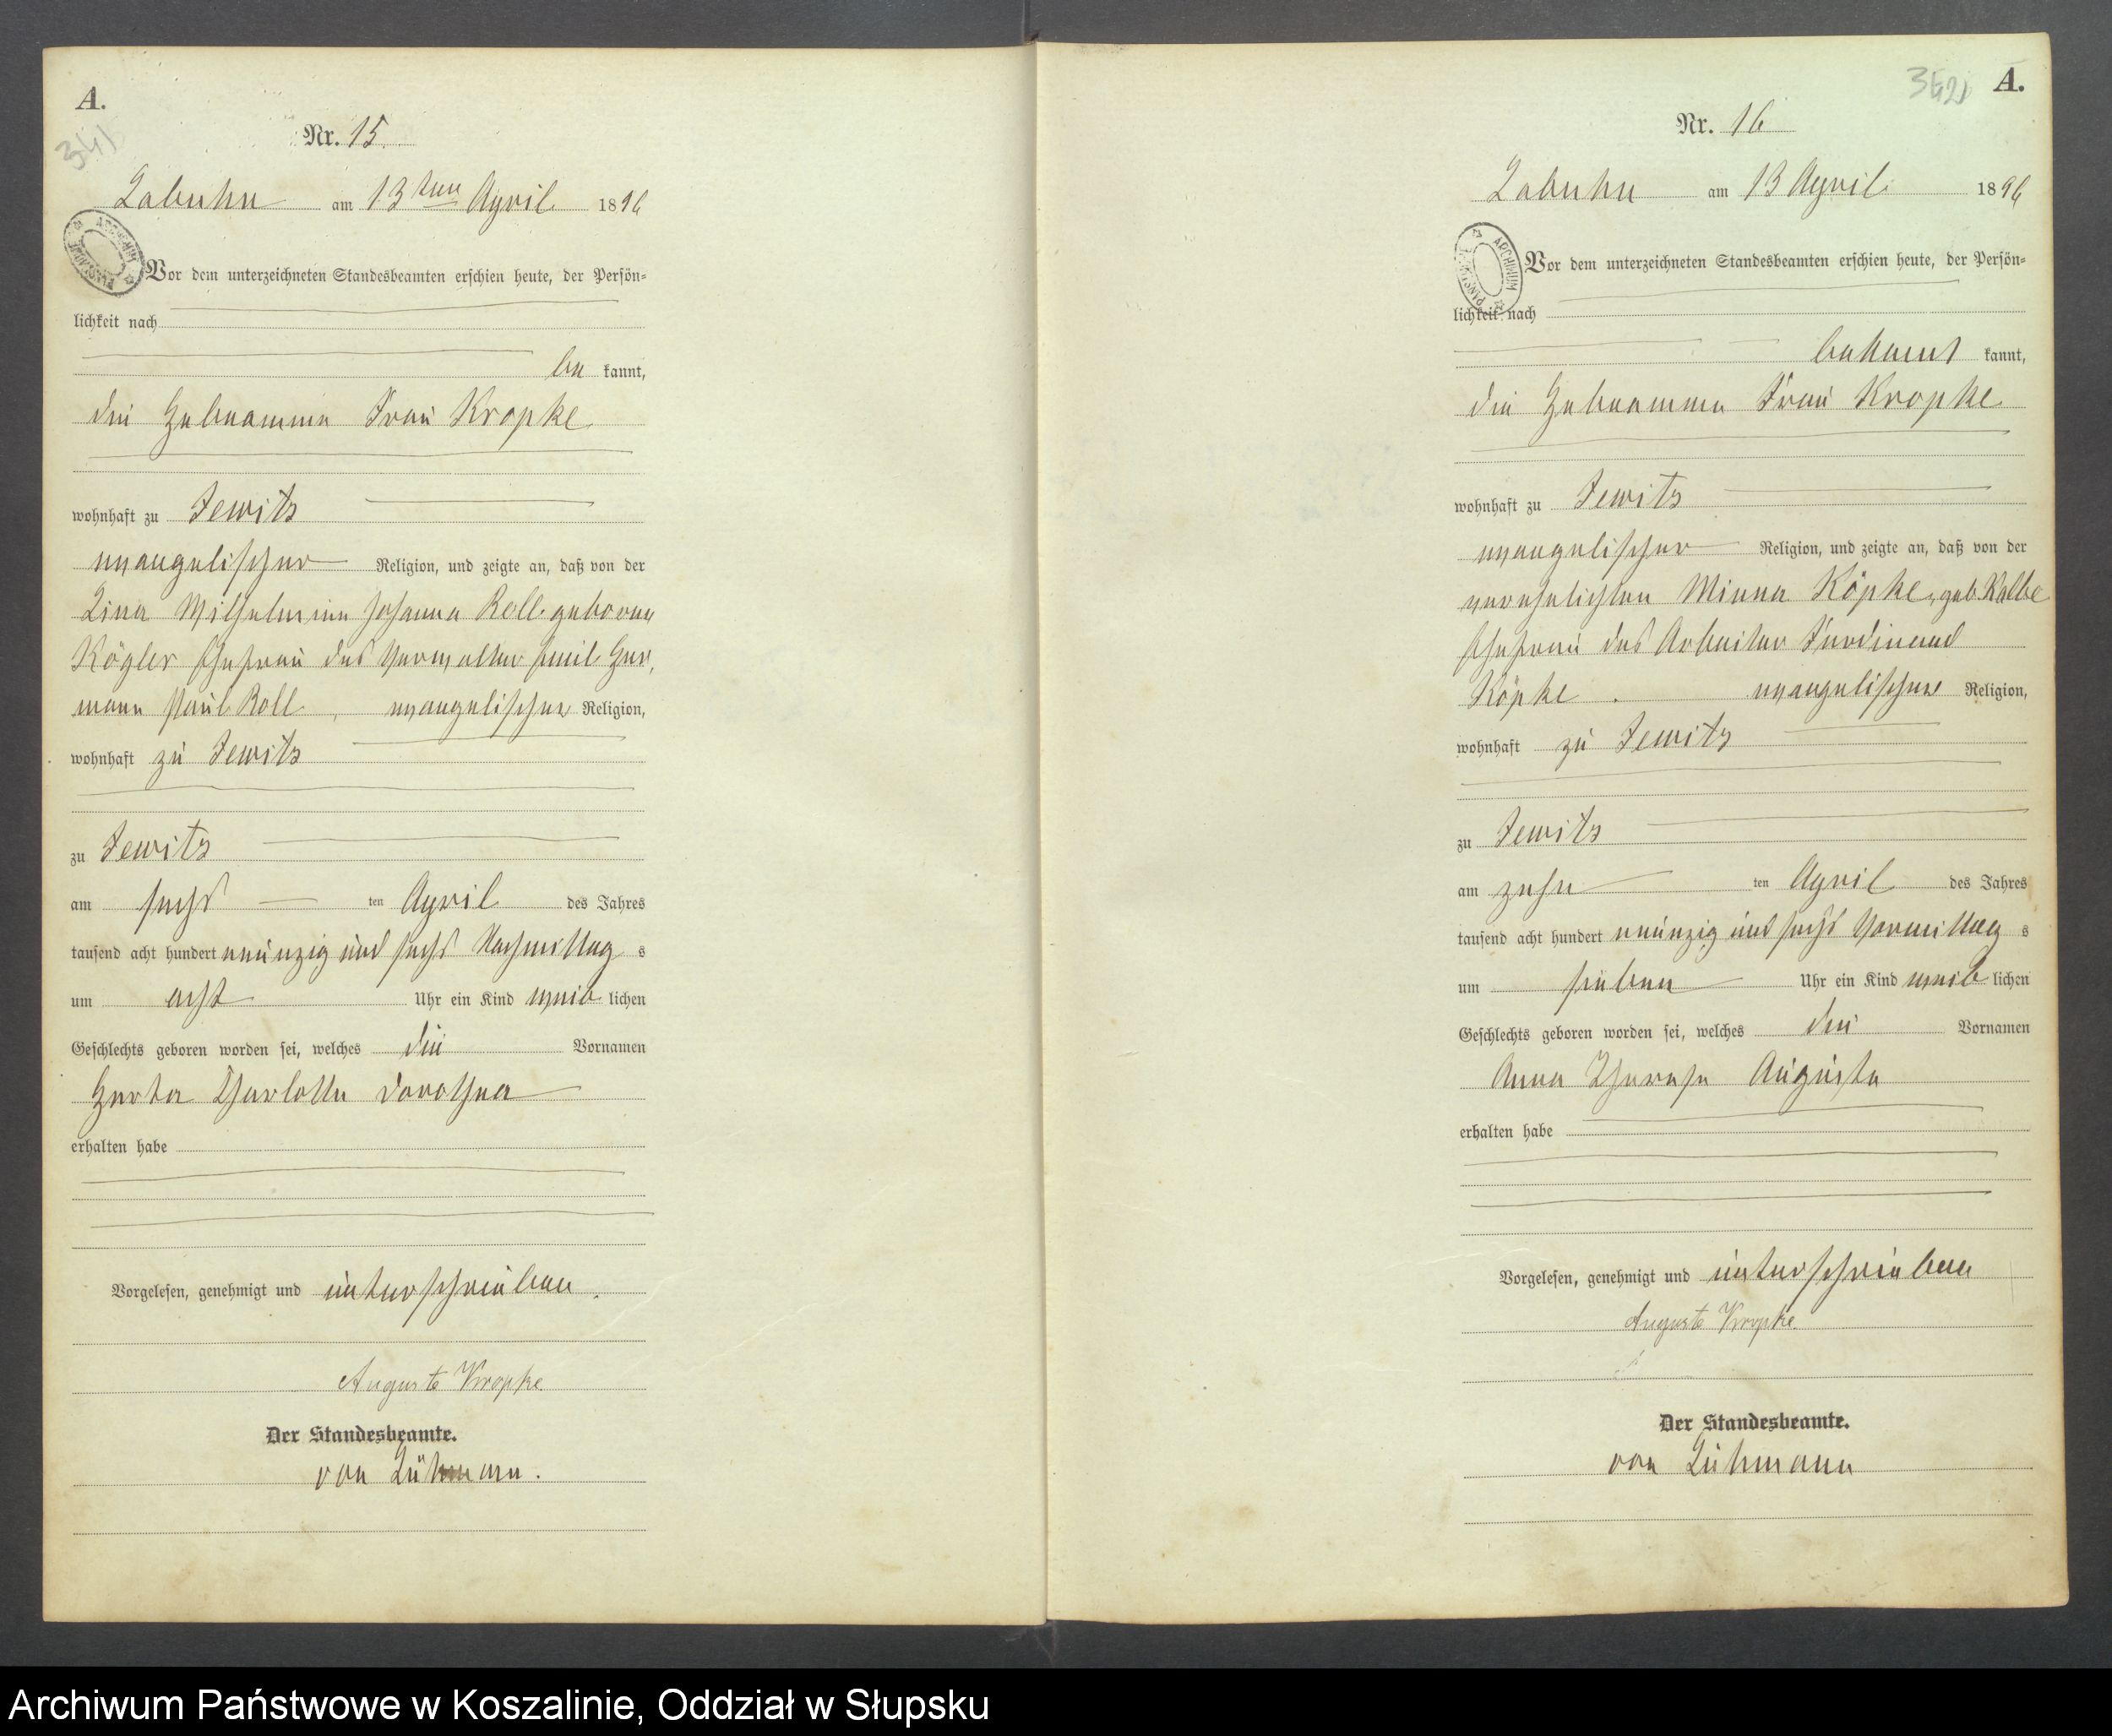 A.
341
Nr. 15.
Labuhn am 13ten April 1896
Vor dem unterzeichneten Standesbeamten erschien heute, der Persön-
lichkeit nach
be kannt,
die Hebeamme Frau Kropke
wohnhaft zu Jewitz
evangelischer Religion, und zeigte an, daß von der
Lina Wilhelmine Johanna Roll geborene
Kögler Ehefrau des Verwalter Emil Her-
mann Paul Roll, evangelischer Religion,
wohnhaft zu Jewitz
zu Jewitz
am sechs ten April des Jahres
tausend acht hundert neunzig und sechs Nachmittag s
um acht Uhr ein Kind weib lichen
Geschlechts geboren worden sei, welches die Vornamen
Herta Charlotte Dorothea
erhalten habe
Vorgelesen, genehmigt und unterschrieben.
Auguste Kropke
Der Standesbeamte.
von Lühmann.
A.
Nr. 16
Labuhn am 13 April 1896
Vor dem unterzeichneten Standesbeamten erschien heute, der Persön-
lichkeit nach
bekannt kannt,
die Hebeamme Frau Kropke
wohnhaft zu Jewitz
evangelischer Religion, und zeigte an, daß von der
verehelichten Minna Köpke, geb. Kalbe
Ehefrau des Arbeiter Ferdinand
Köpke. evangelischer Religion,
wohnhaft zu Jewitz
zu Jewitz
am zehn ten April des Jahres
tausend acht hundert neunzig und sechs Vormittag s
um sieben Uhr ein Kind weib lichen
Geschlechts geboren worden sei, welches die Vornamen
Anna Therese Auguste
erhalten habe
Vorgelesen, genehmigt und unterschrieben
Auguste Kropke.
Der Standesbeamte.
von Lühmann
Archiwum Państwowe w Koszalinie, Oddział w Słupsku